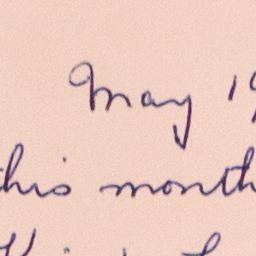 May 19
this month